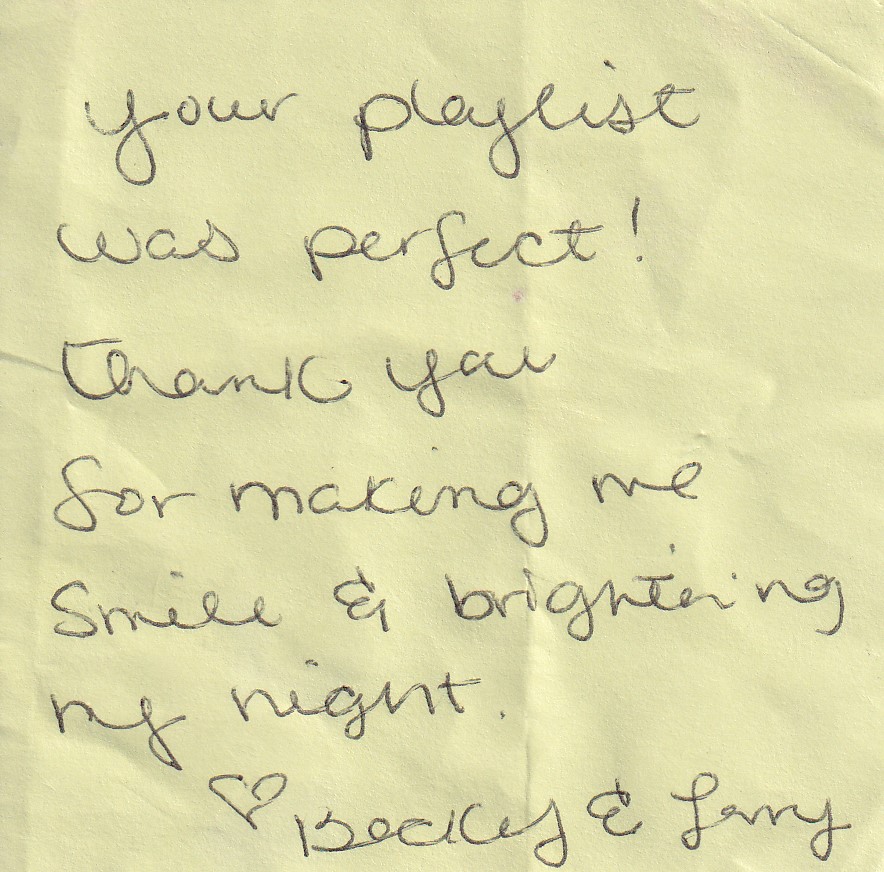 your playlist
was perfect!
Thank you
for making me
smile & brightening
my night.
♡ Becky &